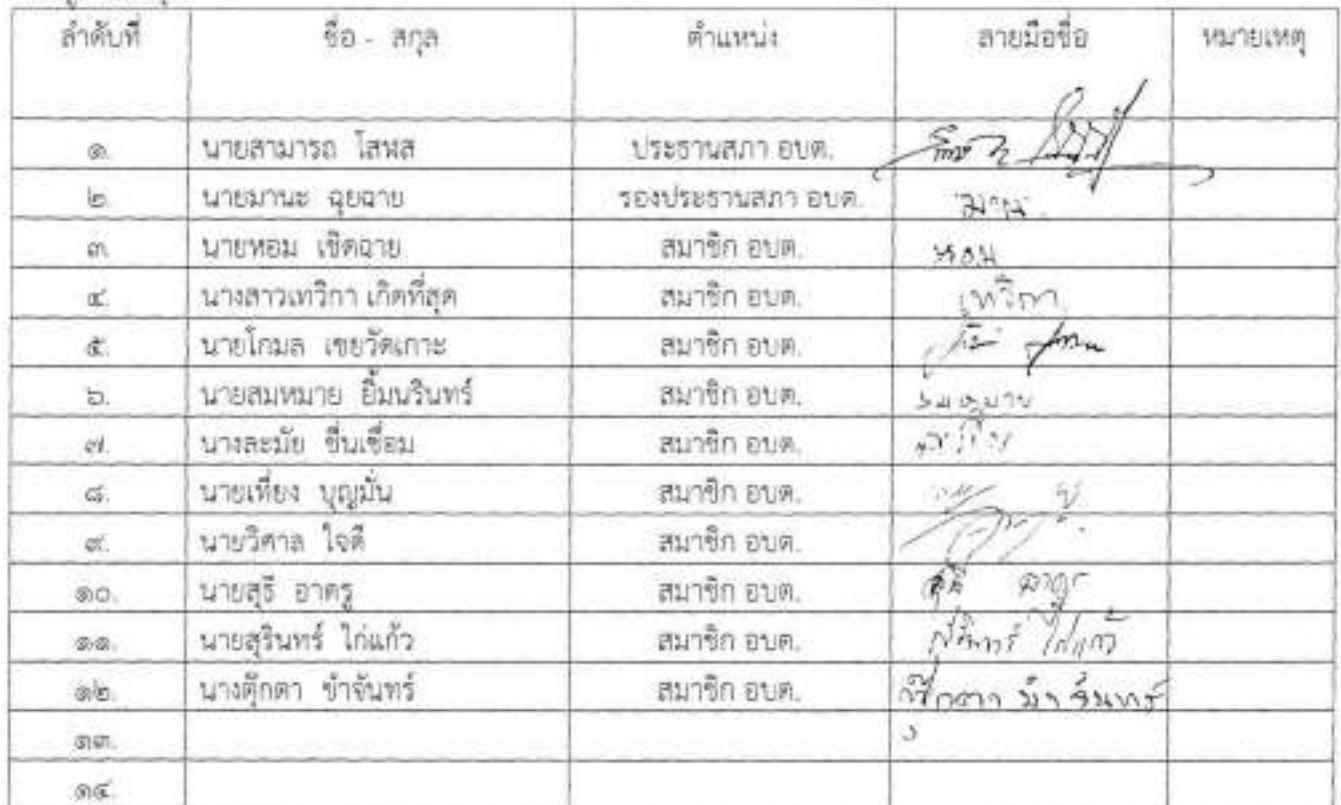 ลำดับที่ ชื่อ - สกุล ตำแหน่ง ลายมือชื่อ หมายเหตุ
๑. นายสามารถ โสฬส ประธานสภา อบต.
๒. นายมานะ ฉุยฉาย รองประธานสภา อบต. มานะ
๓. นายหอม เชิดฉาย สมาชิก อบต. หอม
๔. นางสาวเทวิกา เกิดที่สุด สมาชิก อบต. เทวิกา
๕. นายโกมล เขยวัดเกาะ สมาชิก อบต.
๖. นายสมหมาย ยิ้มนรินทร์ สมาชิก อบต. สมหมาย
๗. นางละมัย ชื่นเชื่อม สมาชิก อบต. ละมัย
๘. นายเที่ยง บุญมั่น สมาชิก อบต.
๙. นายวิศาล ใจดี สมาชิก อบต.
๑๐. นายสุธี อาตรู สมาชิก อบต.
๑๑. นายสุรินทร์ ไก่แก้ว สมาชิก อบต. สุรินทร์ ไก่แก้ว
๑๒. นางตุ๊กตา ขำจันทร์ สมาชิก อบต. ตุ๊กตา ขำจันทร์
๑๓.
๑๔.